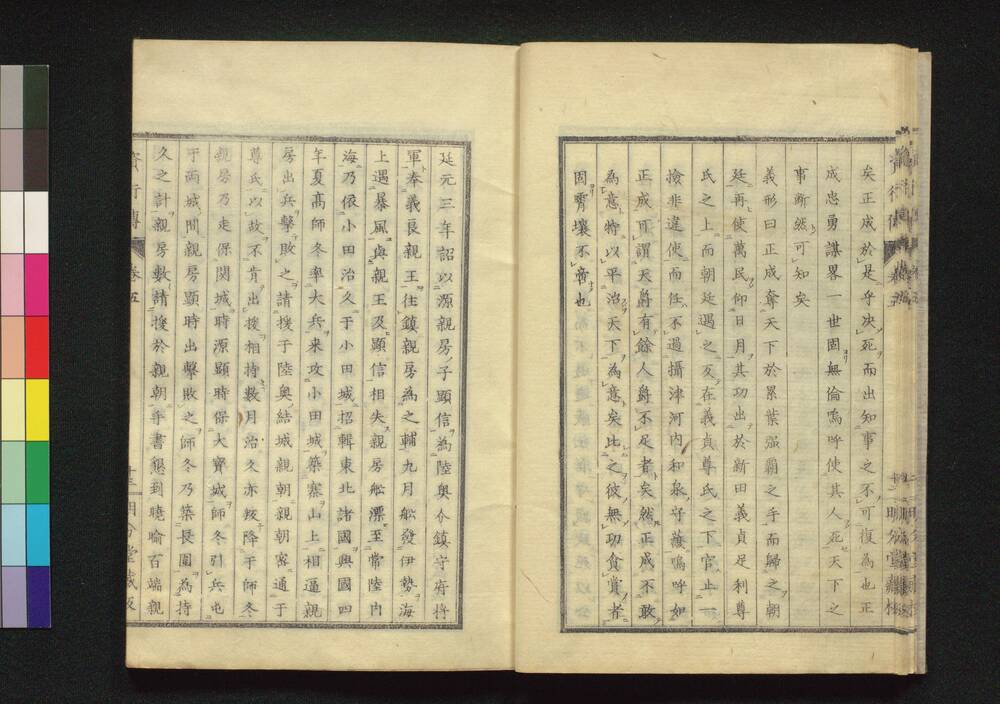 矣正成於是乎决死而出知事之不可復為也正
成忠勇謀畧一世固無倫嗚呼使其人死天下之
事斷然可知矣
義形曰正成奪天下於累葉强霸之手而歸之朝
廷再使萬民仰日月其功出於新田義貞足利尊
氏之上而朝廷遇之反在義貞尊氏之下官止一
撿非違使而任不過攝津河内和泉守護嗚呼如
正成可謂天爵有餘人爵不足者矣然正成不敢
為意特以平治天下為意矣比之彼無功貪賞者
固霄壤不啻也
延元三年詔以源親房子顕信為陸奥介鎮守府將
軍奉義良親王往鎮親房為之輔九月舩發伊勢海
上遇暴風與親王及顕信相失親房舩漂至常陸内
海乃依小田治久于小田城招輯東北諸國興國四
年夏髙師冬率大兵来攻小田城築寨山上相逼親
房出兵擊敗之請援于陸奥結城親朝親朝密通于
尊氏以故不肯出援相持数月治久亦叛降于師冬
親房乃走保関城時源顕時保大寳城師冬引兵屯
于両城間親房顕時出擊敗之師冬乃築長圍為持
久之計親房數請援於親朝手書懇到曉喻百端親
卷五
明分堂藏板